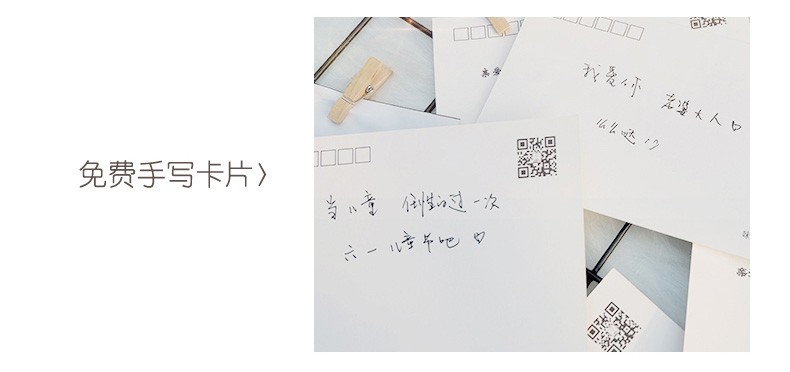 免费手写卡片〉
我爱你 老婆大人
么么哒
当儿童 倒的过一次
六一儿童节吧